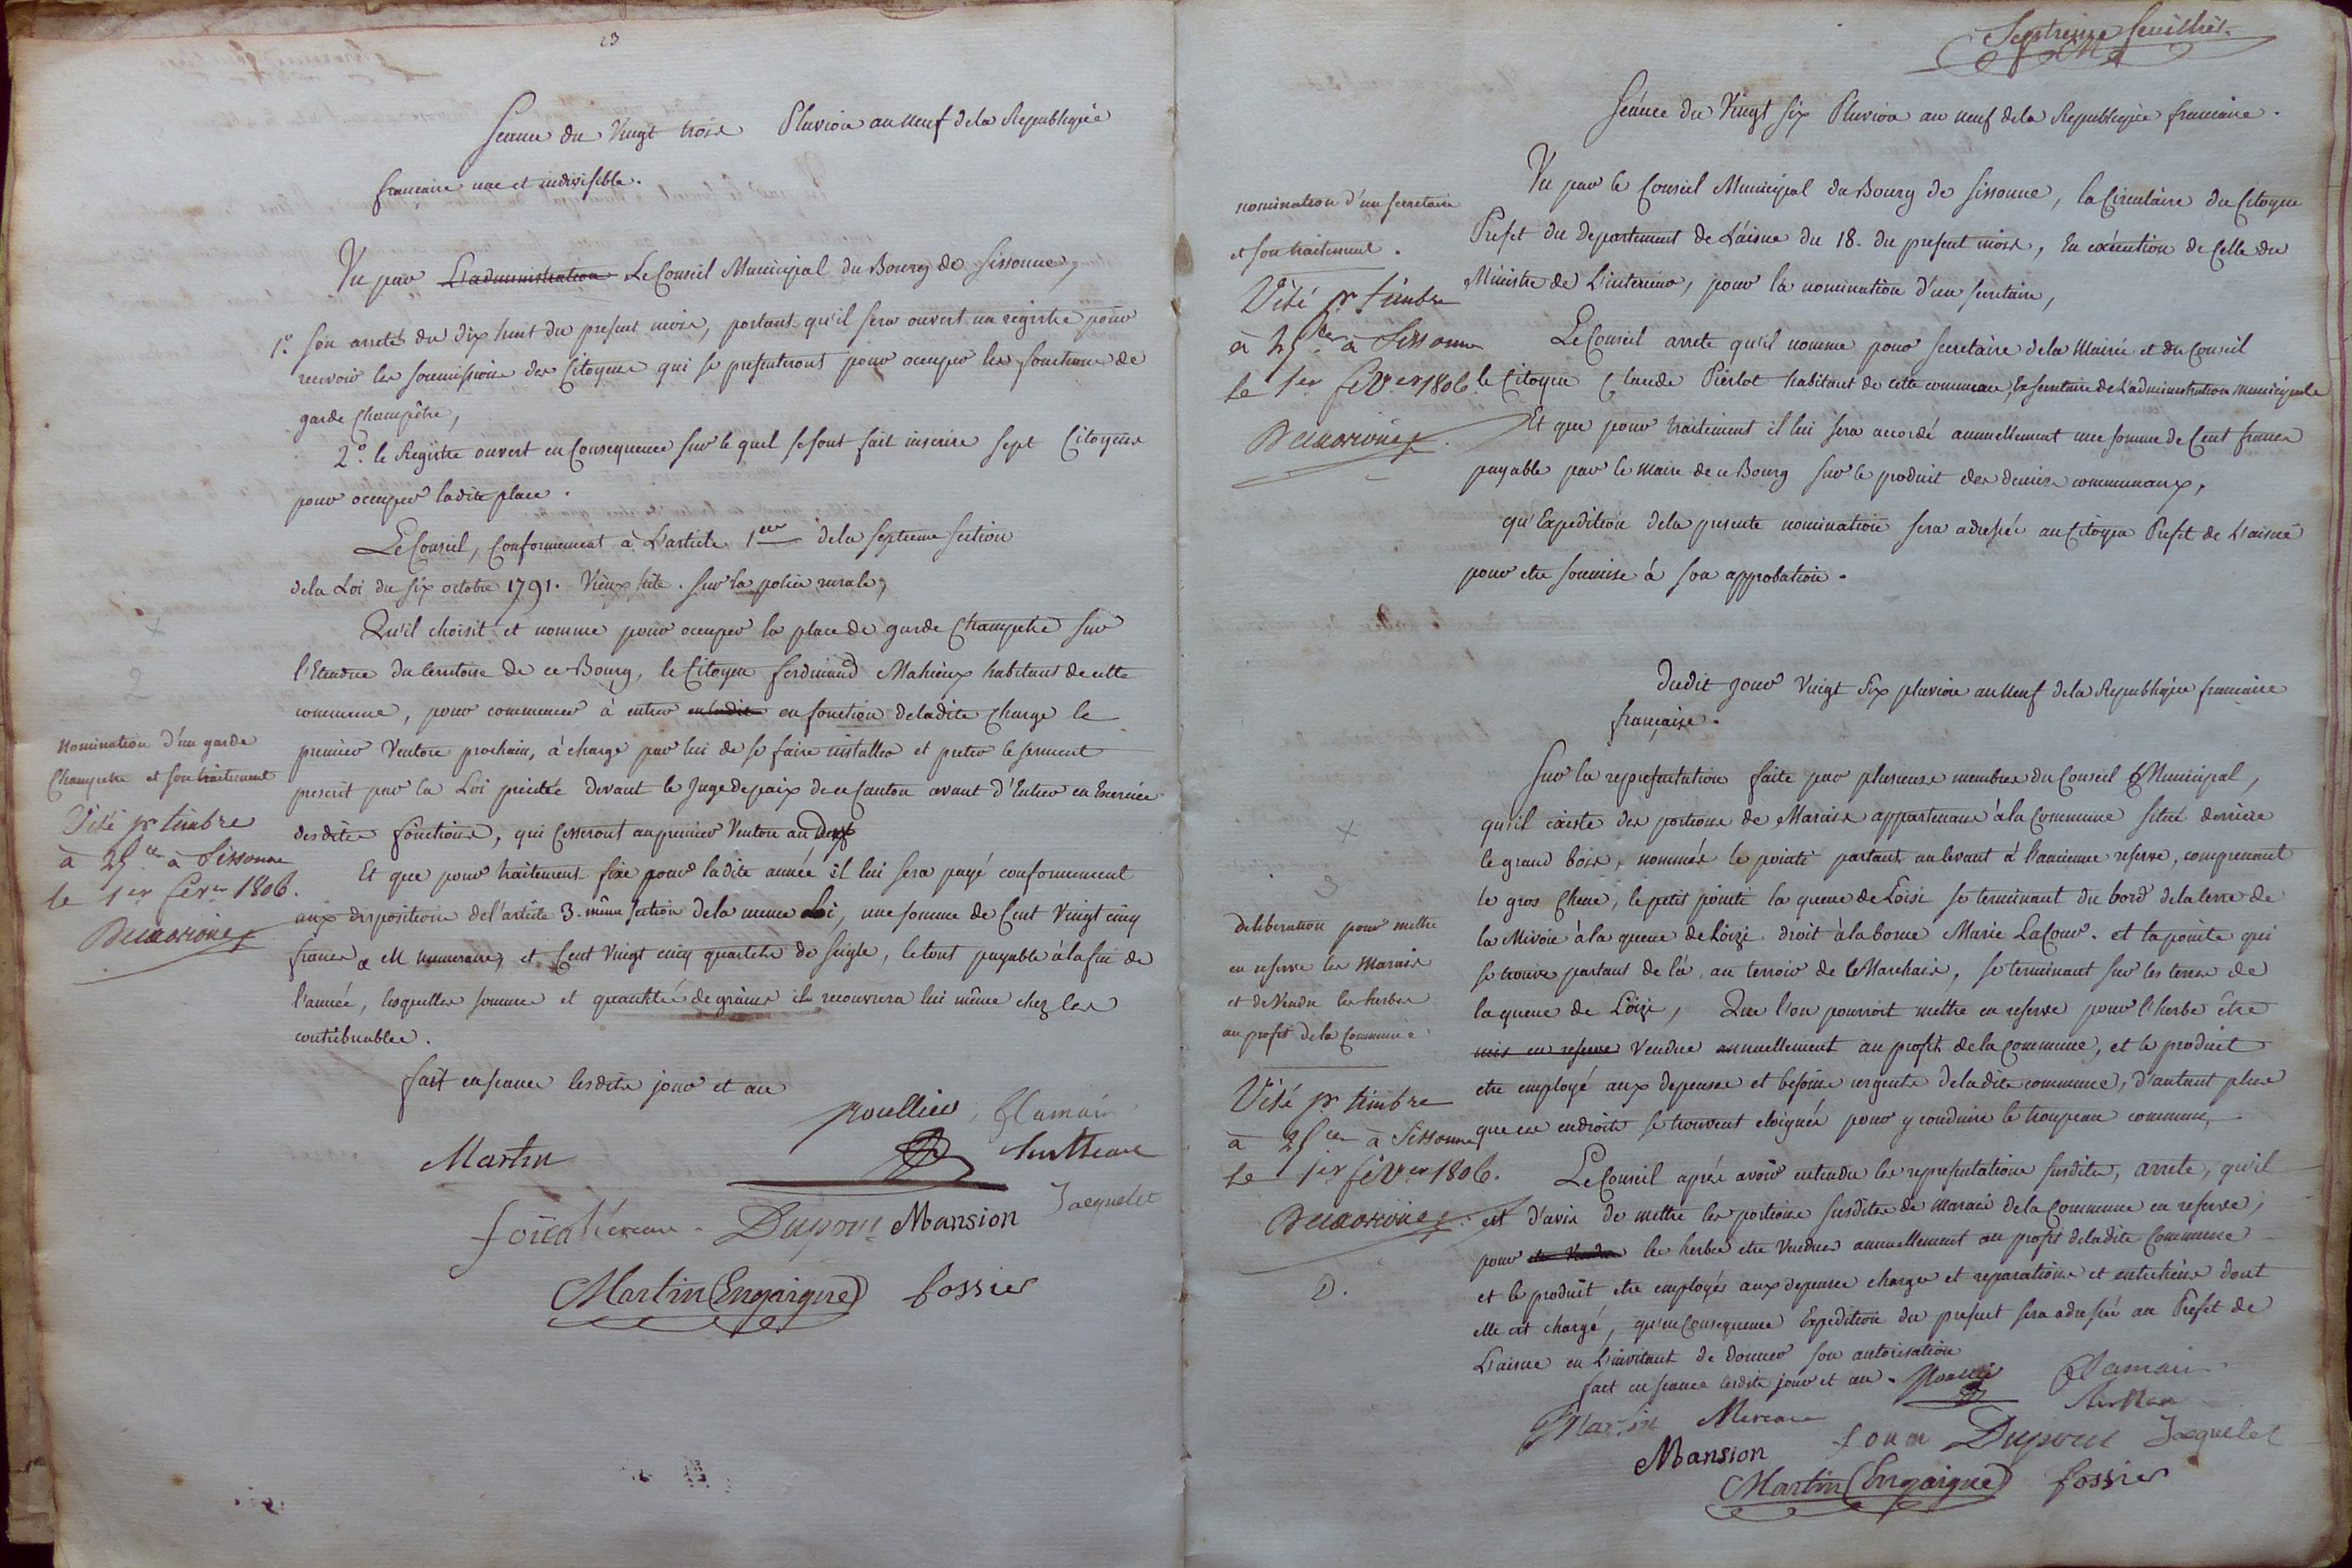 23
Seance du Vingt trois Pluviose an neuf de la Republique
francaise une et indivisible.
Vu par L'administration Le Conseil Municipal du Bourg de Sissonne,
1.° son arreté du dix huit du present mois, portant qu'il sera ouvert un registre pour
recevoir les soumissions des Citoyens qui se presenteront pour occuper les fonctions de
garde Champêtre,
2.° le Registre ouvert en Consequence sur le quel se sont fait inscrire sept Citoyens
pour occuper ladite place.
Le Conseil, Conformement à L'article 1er de la septieme section
de la Loi du six octobre 1791. Vieux stile. sur la police rurale,
Qu'il choisit et nomme pour occuper la place de garde Champetre sur
l'Etendue du territoire de ce Bourg, le Citoyen ferdinand Mahieux habitant de cette
commune, pour commencer à entrer en ladite en fonction deladite Charge le
premier Ventose prochain, à charge par lui de se faire installer et preter le serment
prescrit par la Loi précitée devant le Juge de paix de ce Canton avant d'Entrer en Exercice
desdites fonctions, qui Cesseront au premier Ventose an Dix
Et que pour traitement fixe pour ladite année il lui sera payé conformement
aux dispositions de l'article 3. même section de la meme Loi, une somme de Cent Vingt cinq
francs en numeraire, et Cent Vingt cinq quartels de seigle, le tout payable à la fin de
l'année, lesquelles sommes et quantités de grains il recouvrera lui même chez les
contribuables.
fait en seance lesdits jour et an
Nomination d'un garde
Champetre et son traitement
Visé pr timbre
à 25 ces à Sissonne
le 1er fevr 1806.
poullier Hamain
Martin
Mereau Dupont Mansion Jacquelet
Martin (Engaigne) fossier
Septieme feuillet
Seance du Vingt six Pluviose an neuf de la Republique francaise.
Vu par le Conseil Municipal du Bourg de Sissonne, la Circulaire du Citoyen
Prefet du departement de L'aisne du 18. du present mois, En exécution de Celle du
Ministre de L'interieur, pour la nomination d'un secretaire,
Le Conseil arrete qu'il nomme pour secretaire de la Mairie et du Conseil
le Citoyen Claude Pierlot habitant de cette commune, Ex secretaire de L'administration municipale
Et que pour traitement il lui sera accordé annuellement une somme de Cent francs
payable par le Maire de ce Bourg sur le produit des deniers communaux,
qu'Expedition de la presente nomination sera adressée au Citoyen Prefet de L'aisne
pour etre soumise à son approbation.
nomination d'un secretaire
et son traitement.
Visé pr timbre
à 25 ces à Sissonne
le 1er fevrer 1806.
Dudit jour Vingt Six pluviose an neuf de la Republique francaise
française.
Sur la representation faite par plusieurs membres du Conseil Municipal,
qu'il existe des portions de Marais appartenans à la Commune situé derriere
le grand bois, nommés le pointé partant au levant à l'ancienne reserve, comprenant
le gros Chene, le petit pointé la queue de Loisi se terminant du bord de la terre de
la Mivoie à la queue de Löizi droit à la borne Marie La Cour. et la pointe qui
se trouve partant de là au terroir de leMarchais, se terminant sur les terres de
la queue de Löizi, Que l'on pourroit mettre en reserve pour l'herbe être
mis en reserve Vendue annuellement au profit de la Commune, et le produit
etre employé aux depenses et besoins urgents de ladite commune, d'autant plus
que ces endroits se trouvent eloignés pour y conduire le troupeau commun,
Le Conseil après avoir entendu les representations susdites, arrete, qu'il
est d'avis de mettre les portions susdites de marais de la Commune en reserve,
pour etre Vendre les herbes etre Vendues annuellement au profit de ladite Commune
et le produit etre employés aux depenses charges et reparations et entretiens dont
elle est chargé, qu'en Consequence Expedition du present sera adressée au Prefet de
L'aisne en L'invitant de donner son autorisation
fait en seance lesdits jour et an.
X
3
deliberation pour mettre
en reserve les Marais
et de Vendre les herbes
au profit de la Commune
Visé pr timbre
à 25 ces à Sissonne
le 1er fevrer 1806.
D.
Hamain
Martin Mereau
Mansion Dupont Jacquelet
Martin (Engaigne) fossier